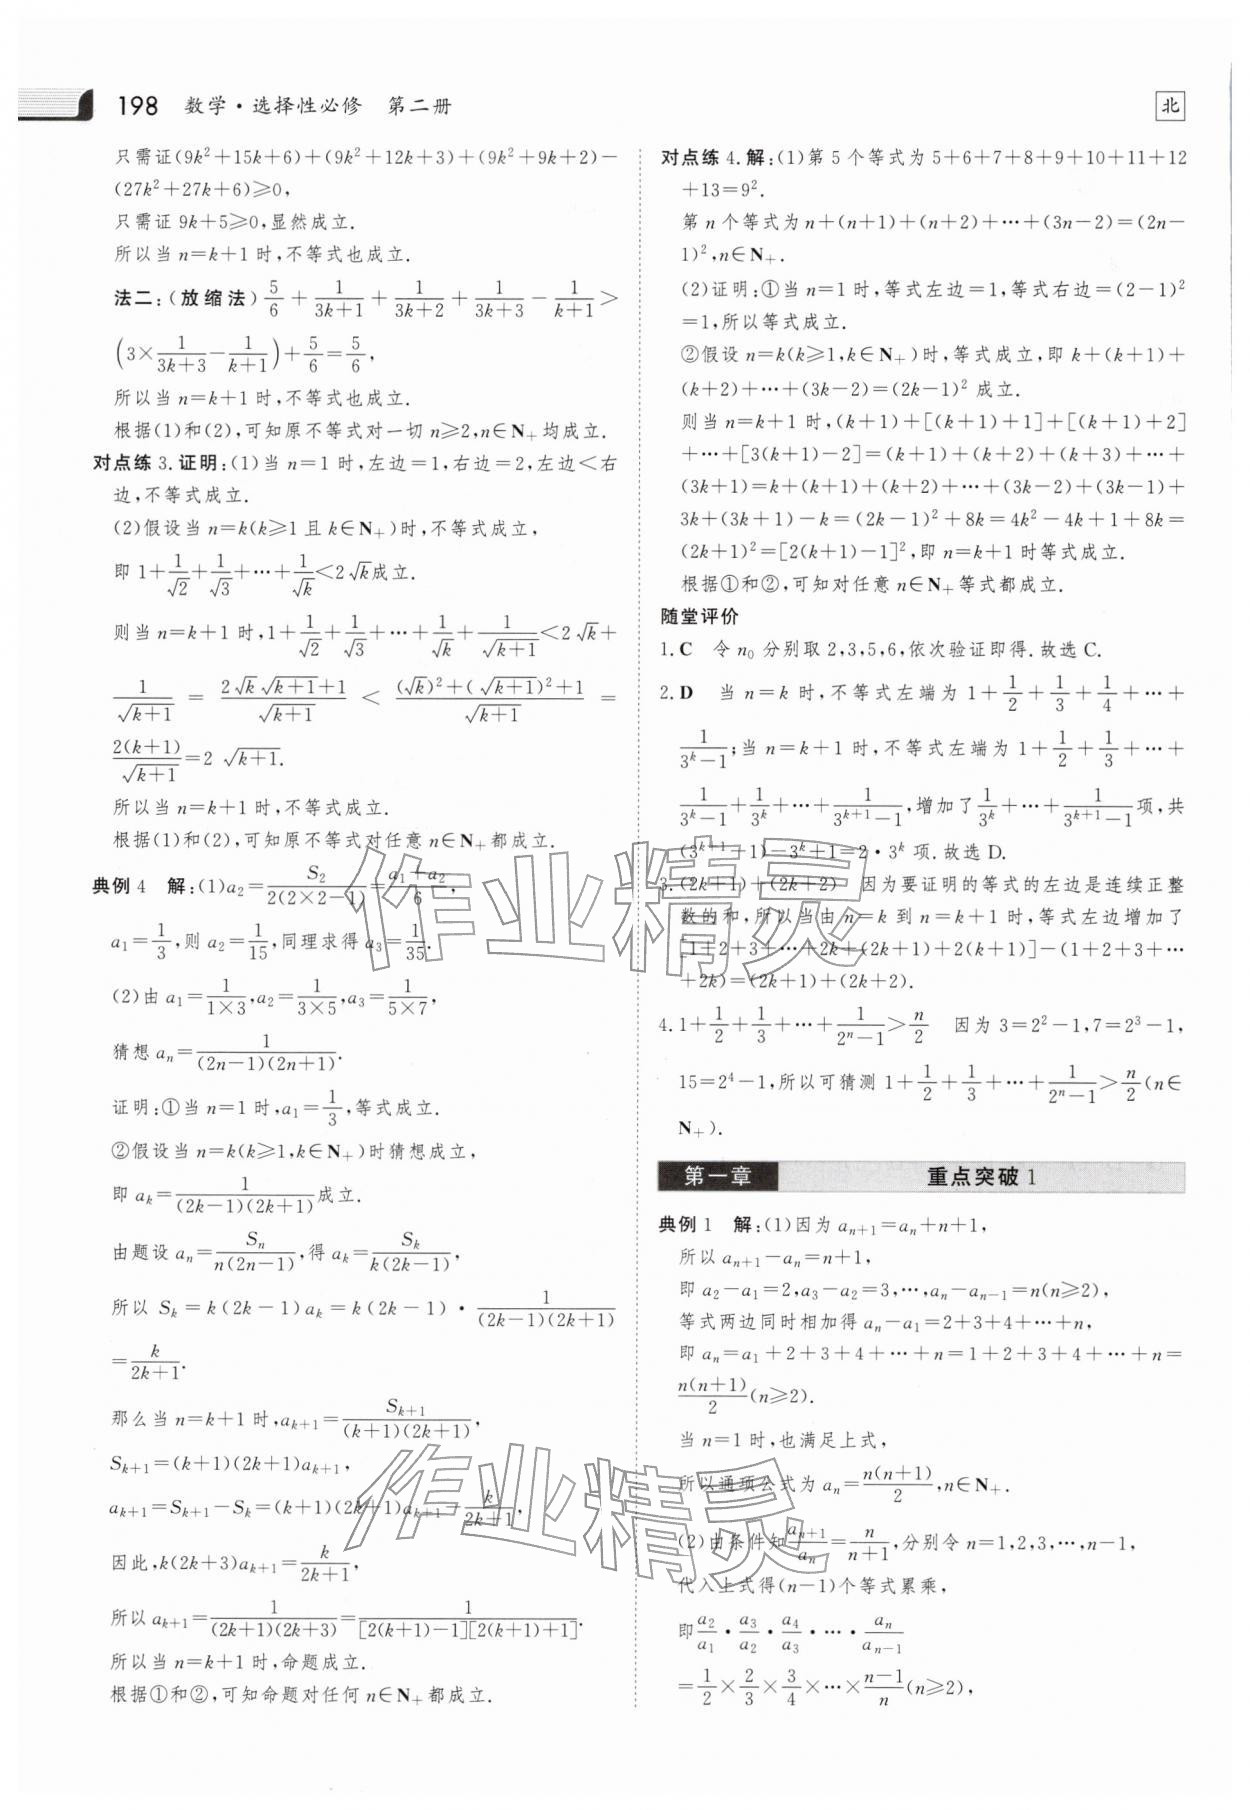 198 数学·选择性必修 第二册
北
只需证(9k²+15k+6)+(9k²+12k+3)+(9k²+9k+2)−
(27k²+27k+6)⩾0,
只需证 9k+5⩾0,显然成立.
所以当 n=k+1 时,不等式也成立.
法二:(放缩法)5/6+1/(3k+1)+1/(3k+2)+1/(3k+3)−1/(k+1)>
(3×1/(3k+3)−1/(k+1))+5/6=5/6,
所以当 n=k+1 时,不等式也成立.
根据(1)和(2),可知原不等式对一切 n⩾2,n∈N₊均成立.
对点练 3.证明:(1)当 n=1 时,左边=1,右边=2,左边<右
边,不等式成立.
(2)假设当 n=k(k⩾1 且 k∈N₊)时,不等式成立,
即 1+1/√2+1/√3+⋯+1/√k<2√k成立.
则当 n=k+1 时,1+1/√2+1/√3+⋯+1/√k+1/√(k+1)<2√k+
1/√(k+1)=(2√k√(k+1)+1)/√(k+1)<((√k)²+(√(k+1))²+1)/√(k+1)=
2(k+1)/√(k+1)=2√(k+1).
所以当 n=k+1 时,不等式成立.
根据(1)和(2),可知原不等式对任意 n∈N₊都成立.
典例 4 解:(1)a₂=S₂/(2(2×2−1))=(a₁+a₂)/6,
a₁=1/3,则 a₂=1/15,同理求得 a₃=1/35.
(2)由 a₁=1/(1×3),a₂=1/(3×5),a₃=1/(5×7),
猜想 aₙ=1/((2n−1)(2n+1)).
证明:①当 n=1 时,a₁=1/3,等式成立.
②假设当 n=k(k⩾1,k∈N₊)时猜想成立,
即 aₖ=1/((2k−1)(2k+1)).
由题设 aₙ=Sₙ/(n(2n−1)),得 aₖ=Sₖ/(k(2k−1)),
所以 Sₖ=k(2k−1)aₖ=k(2k−1)·1/((2k−1)(2k+1))
=k/(2k+1).
那么当 n=k+1 时,aₖ₊₁=Sₖ₊₁/((k+1)(2k+1)),
Sₖ₊₁=(k+1)(2k+1)aₖ₊₁,
aₖ₊₁=Sₖ₊₁−Sₖ=(k+1)(2k+1)aₖ₊₁−k/(2k+1),
因此,k(2k+3)aₖ₊₁=k/(2k+1),
所以 aₖ₊₁=1/((2k+1)(2k+3))=1/([2(k+1)−1][2(k+1)+1]).
所以当 n=k+1 时,命题成立.
根据①和②,可知命题对任何 n∈N₊都成立.
对点练 4.解:(1)第 5 个等式为 5+6+7+8+9+10+11+12
+13=9².
第 n 个等式为 n+(n+1)+(n+2)+⋯+(3n−2)=(2n−
1)²,n∈N₊.
(2)证明:①当 n=1 时,等式左边=1,等式右边=(2−1)²
=1,所以等式成立.
②假设 n=k(k⩾1,k∈N₊)时,等式成立,即 k+(k+1)+
(k+2)+⋯+(3k−2)=(2k−1)² 成立.
则当 n=k+1 时,(k+1)+[(k+1)+1]+[(k+1)+2]
+⋯+[3(k+1)−2]=(k+1)+(k+2)+(k+3)+⋯+
(3k+1)=k+(k+1)+(k+2)+⋯+(3k−2)+(3k−1)+
3k+(3k+1)−k=(2k−1)²+8k=4k²−4k+1+8k=
(2k+1)²=[2(k+1)−1]²,即 n=k+1 时等式成立.
根据①和②,可知对任意 n∈N₊等式都成立.
随堂评价
1.C 令 n₀ 分别取 2,3,5,6,依次验证即得.故选 C.
2.D 当 n=k 时,不等式左端为 1+1/2+1/3+1/4+⋯+
1/(3ᵏ−1);当 n=k+1 时,不等式左端为 1+1/2+1/3+⋯+
1/(3ᵏ−1)+1/3ᵏ+⋯+1/(3ᵏ⁺¹−1),增加了1/3ᵏ+⋯+1/(3ᵏ⁺¹−1)项,共
(3ᵏ⁺¹−1)−3ᵏ+1=2·3ᵏ 项.故选 D.
3.(2k+1)+(2k+2) 因为要证明的等式的左边是连续正整
数的和,所以当由 n=k 到 n=k+1 时,等式左边增加了
[1+2+3+⋯+2k+(2k+1)+2(k+1)]−(1+2+3+⋯
+2k)=(2k+1)+(2k+2).
4.1+1/2+1/3+⋯+1/(2ⁿ−1)>n/2 因为 3=2²−1,7=2³−1,
15=2⁴−1,所以可猜测 1+1/2+1/3+⋯+1/(2ⁿ−1)>n/2(n∈
N₊).
第一章 重点突破 1
典例 1 解:(1)因为 aₙ₊₁=aₙ+n+1,
所以 aₙ₊₁−aₙ=n+1,
即 a₂−a₁=2,a₃−a₂=3,⋯,aₙ−aₙ₋₁=n(n⩾2),
等式两边同时相加得 aₙ−a₁=2+3+4+⋯+n,
即 aₙ=a₁+2+3+4+⋯+n=1+2+3+4+⋯+n=
n(n+1)/2(n⩾2).
当 n=1 时,也满足上式,
所以通项公式为 aₙ=n(n+1)/2,n∈N₊.
(2)由条件知aₙ₊₁/aₙ=n/(n+1),分别令 n=1,2,3,⋯,n−1,
代入上式得(n−1)个等式累乘,
即a₂/a₁·a₃/a₂·a₄/a₃·⋯·aₙ/aₙ₋₁
=1/2×2/3×3/4×⋯×(n−1)/n(n⩾2),
作业精灵
作业精灵